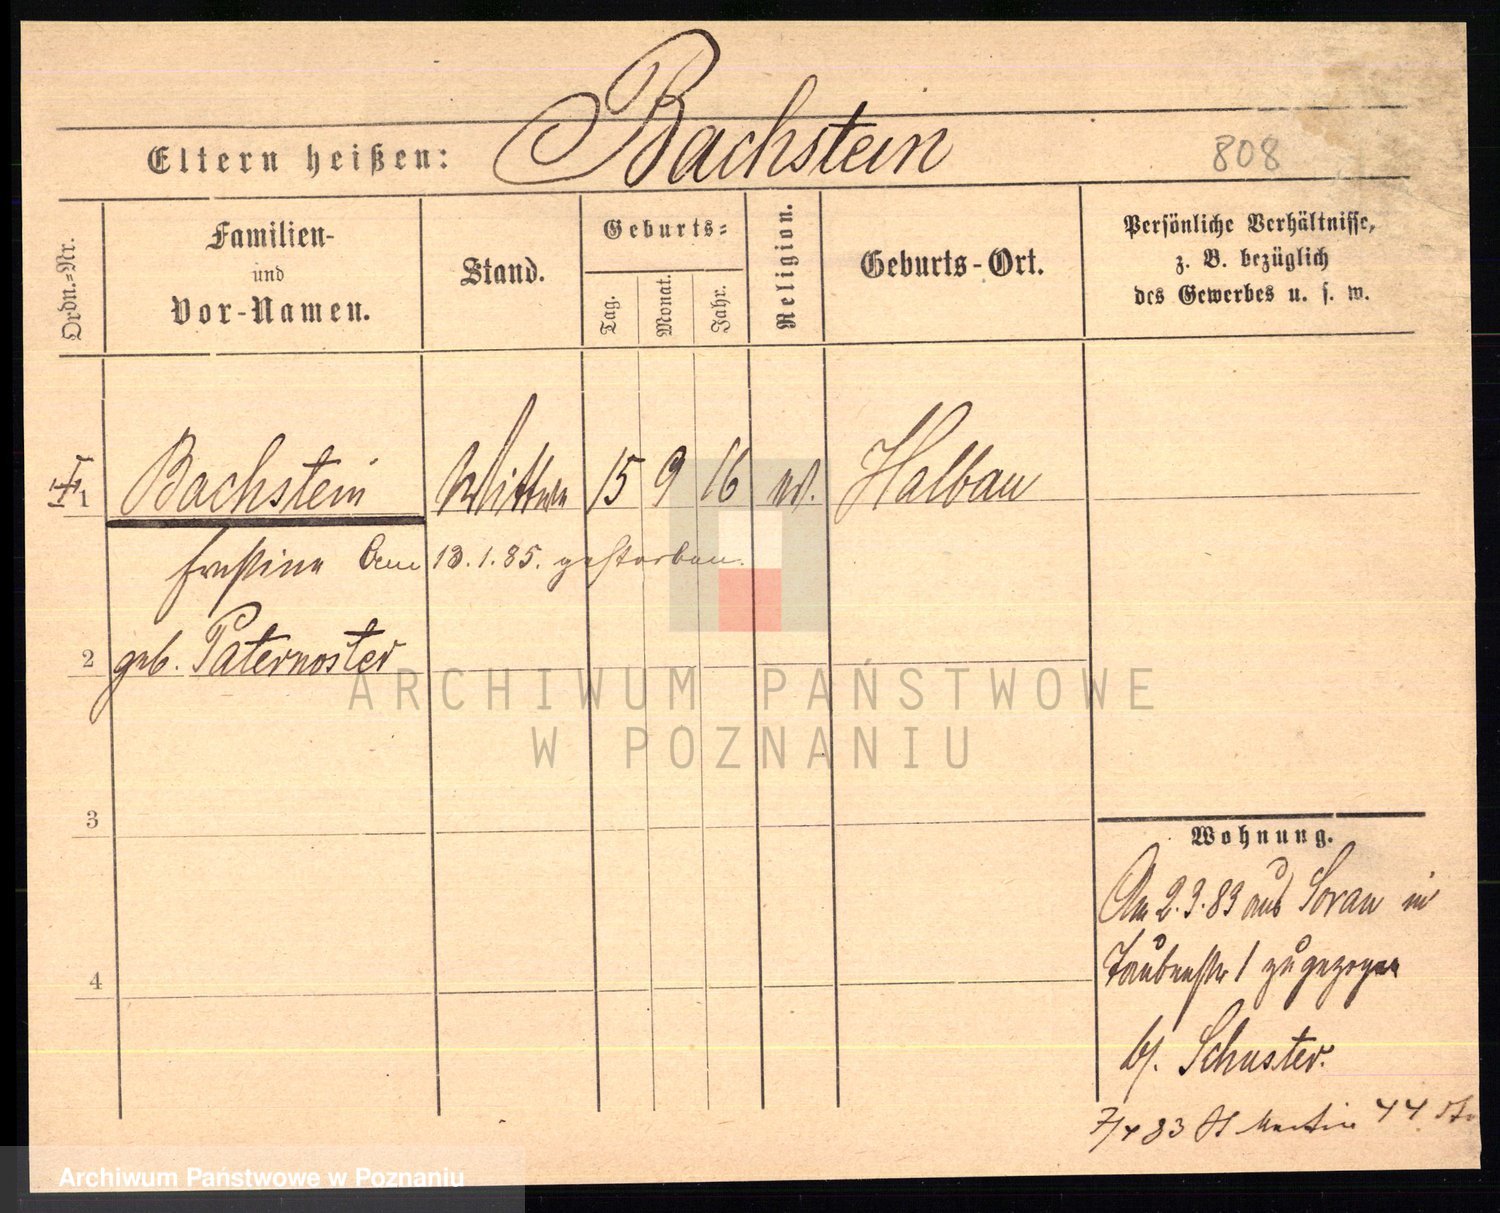 Bachstein
Eltern heißen:
808
Ordn.-Nr.
Familien-
und
Vor-Namen.
Stand.
Geburts-
Tag.
Monat.
Jahr.
Religion.
Geburts-Ort.
Persönliche Verhältnisse,
z. B. bezüglich
des Gewerbes u. s. w.
1 Bachstein Wittwe 15 9 16 ev. Halbau
Am 13.1.85. gestorben.
2 geb. Paternoster
3
4
Wohnung.
Am 2.3.83 aus Sorau in
Taubenstr 1 zugezogen
b/. Schuster.
7/4 83 St Martin 44
ARCHIWUM PAŃSTWOWE
W POZNANIU
Archiwum Państwowe w Poznaniu